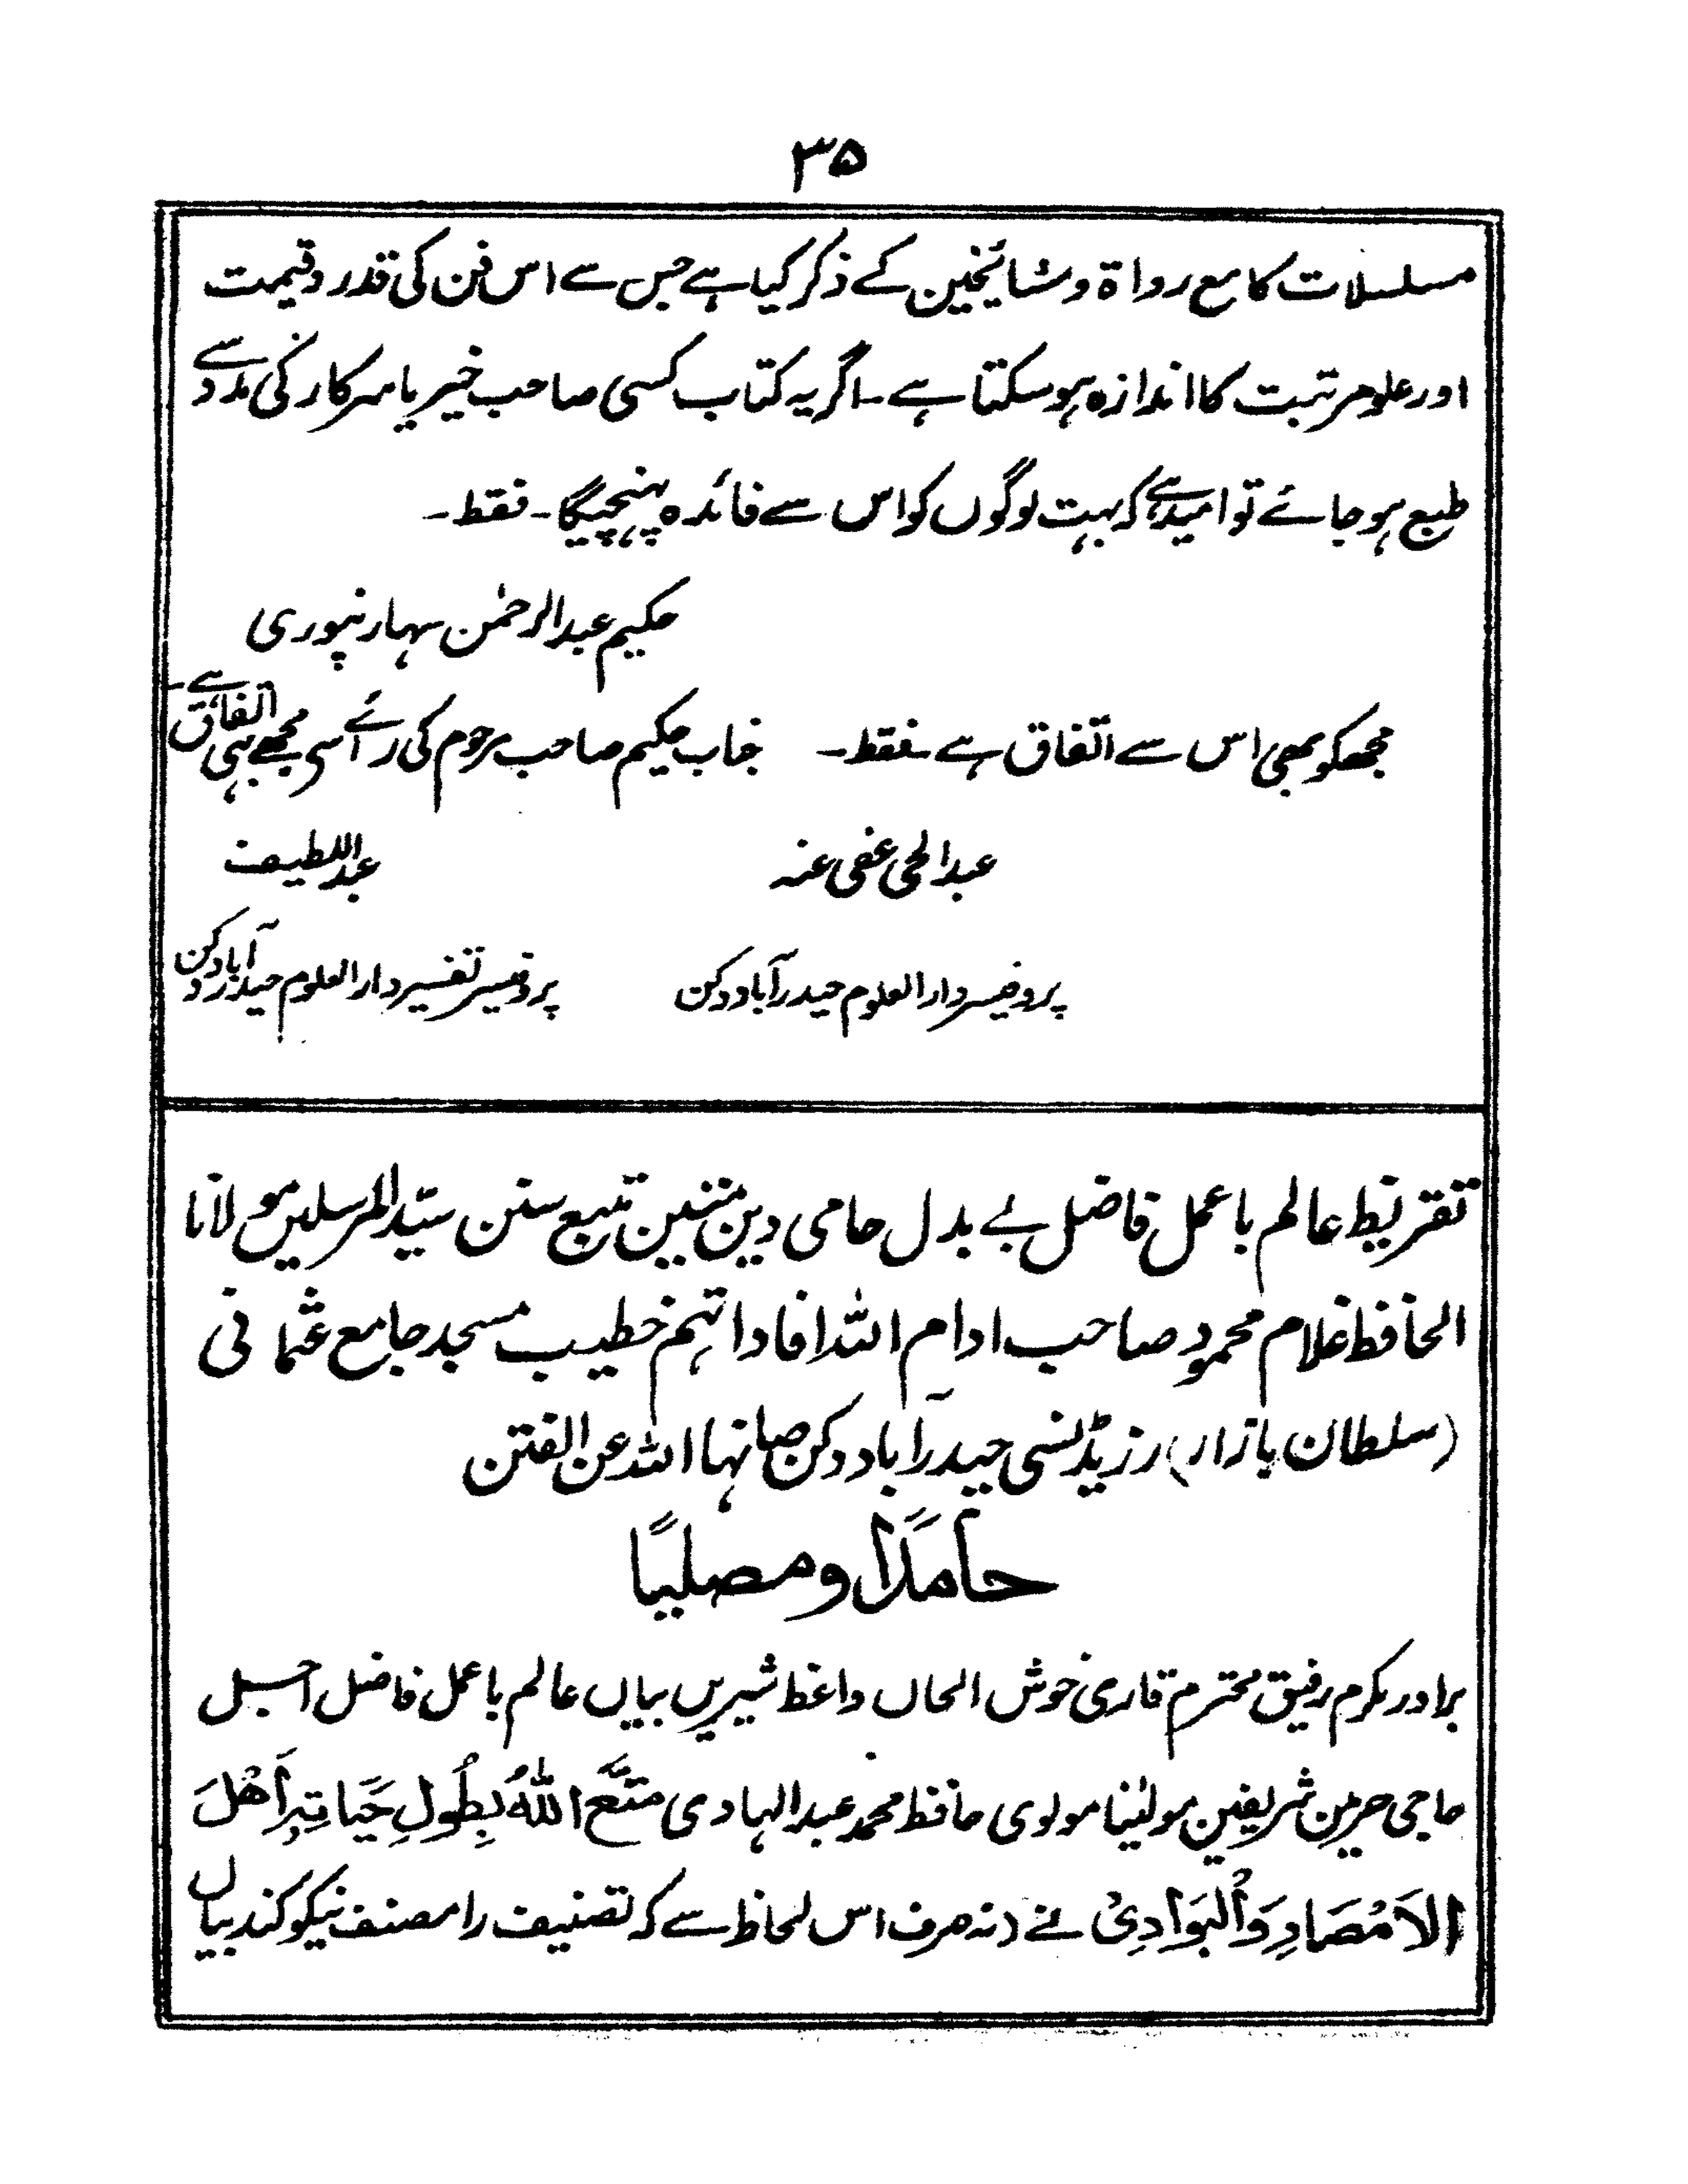 ۳۵
مسلسلات کا مع رواۃ و مشائخین کے ذکر کیا ہے جس سے اس فن کی قدر و قیمت
اور علو مرتبت کا اندازہ ہو سکتا ہے۔ اگر یہ کتاب کسی صاحب خیر یا سرکار کی مدد سے
طبع ہو جائے تو امید ہے کہ بہت لوگوں کو اس سے فائدہ پہنچیگا۔ فقط۔
حکیم عبدالرحمٰن سہارنپوری
مجھکو بھی اس سے اتفاق ہے۔ فقط۔
عبدالحی عفی عنہ
پروفیسر دارالعلوم حیدرآباد دکن
جناب حکیم صاحب مرحوم کی رائے سے مجھے بھی اتفاق ہے۔
عبداللطیف
پروفیسر تفسیر دارالعلوم حیدرآباد دکن
تقریظ عالم با عمل فاضل بے بدل حامی دین متین تتبع سنن سیّد المرسلین مولانا
الحافظ غلام محمود صاحب ادام اللہ افاداتہم خطیب مسجد جامع عثمانی
(سلطان بازار) رزیڈنسی حیدرآباد دکن صانہا اللہ عن الفتن
حامدًا و مصلیًا
برادر مکرم رفیق محترم قاری خوش الحاں واعظ شیریں بیاں عالم با عمل فاضل اجل
حاجی حرمین شریفین مولٰینا مولوی حافظ محمد عبدالہادی مَتَّعَ اللّٰهُ بِطُولِ حَیَاتِہٖ اَھْلَ
الاَمْصَارِ وَالْبَوَادِیْ نے (نہ صرف اس لحاظ سے کہ تصنیف را مصنف نیکو کند بیاں